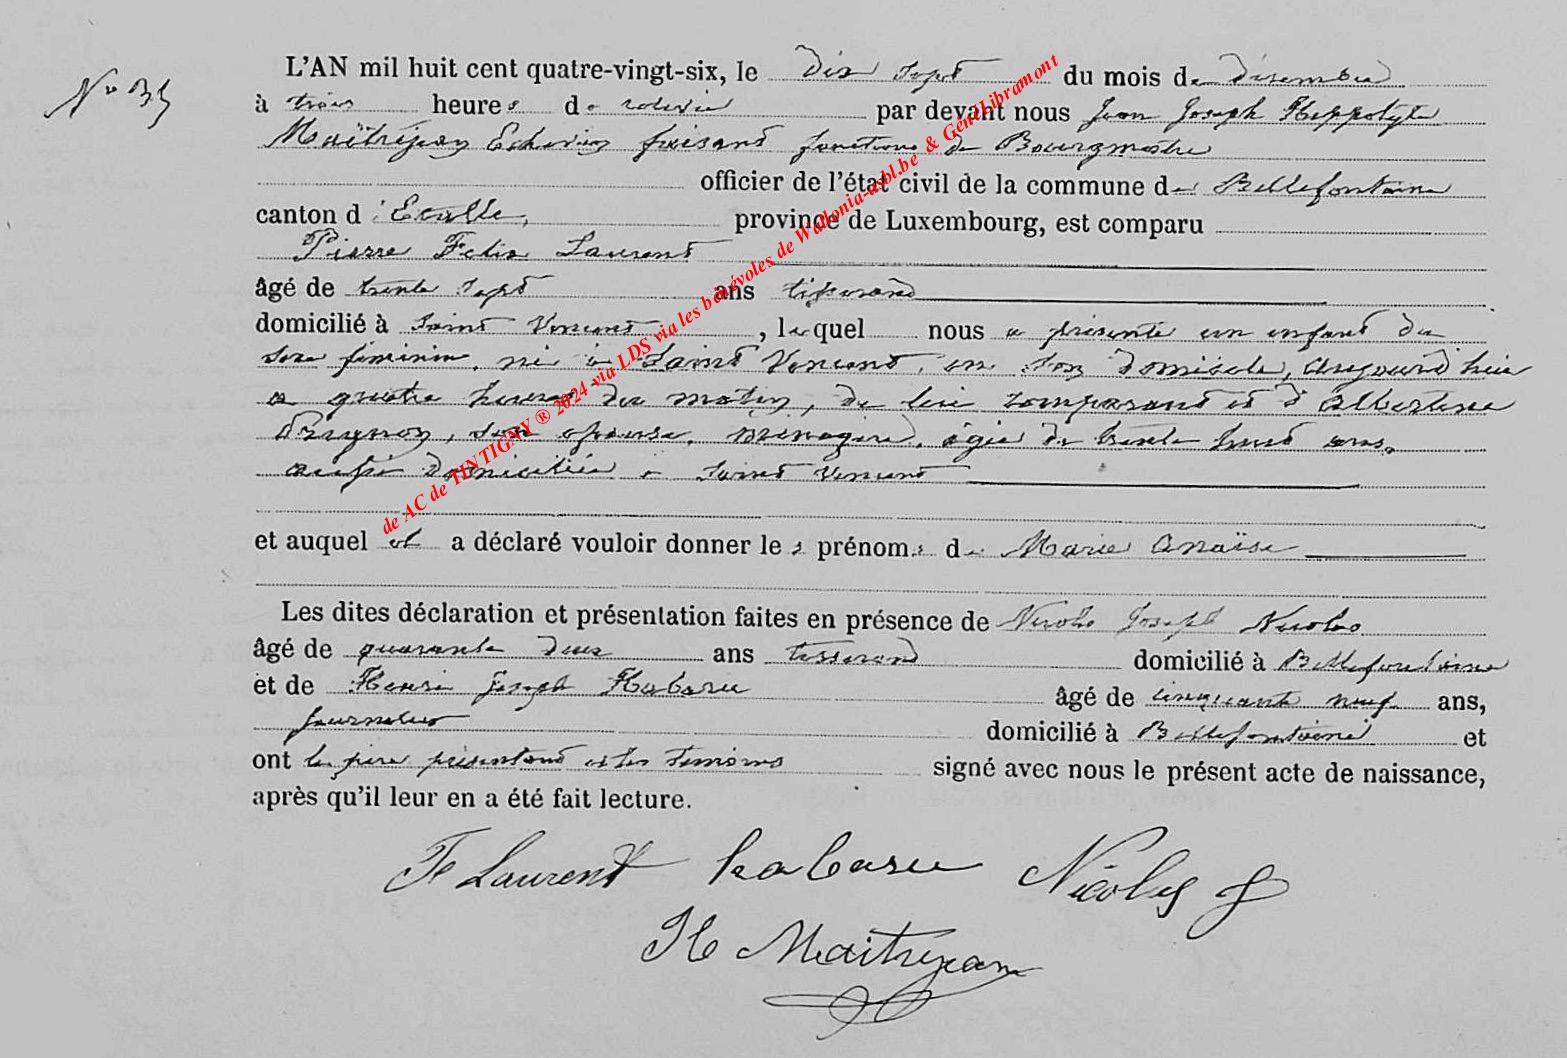 N° 35
L'AN mil huit cent quatre-vingt-six, le dix sept du mois de décembre
à trois heures de relevée par devant nous Jean Joseph Hippolyte
Maîtrejean Echevin faisant fonctions de Bourgmestre
officier de l'état civil de la commune de Bellefontaine
canton d'Etalle, province de Luxembourg, est comparu
Pierre Felix Laurent
âgé de trente sept ans tisserand
domicilié à Saint Vincent, lequel nous a présenté un enfant du
sexe féminin, né à Saint Vincent, en son domicile, aujourd'hui
à quatre heures du matin, de lui comparant et d'Albertine
son épouse, ménagère, âgée de trente huit ans,
aussi domiciliée à Saint Vincent
et auquel il a déclaré vouloir donner les prénoms de Marie Anaïse
Les dites déclaration et présentation faites en présence de Nicolas Joseph Nicolas
âgé de quarante deux ans tisserand domicilié à Bellefontaine
et de Henri Joseph Habaru âgé de cinquante neuf ans,
journalier domicilié à Bellefontaine et
ont le père présentant et les témoins signé avec nous le présent acte de naissance,
après qu'il leur en a été fait lecture.
F Laurent habaru Nicolas J
H Maitrejean
de AC de TINTIGNY ® 2024 via LDS via les bénévoles de Wallonia-asbl.be & GénéLibramont